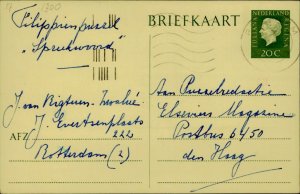 1300
Filippienpuzzel
"Spreekwoord"
BRIEFKAART
NEDERLAND
20 C
J. van Nigtuen-
J. Evertsenplaats
AFZ
222
Rotterdam (2)
aan Puzzelredactie
Elseviers Magazine
Postbus 6450
den Haag